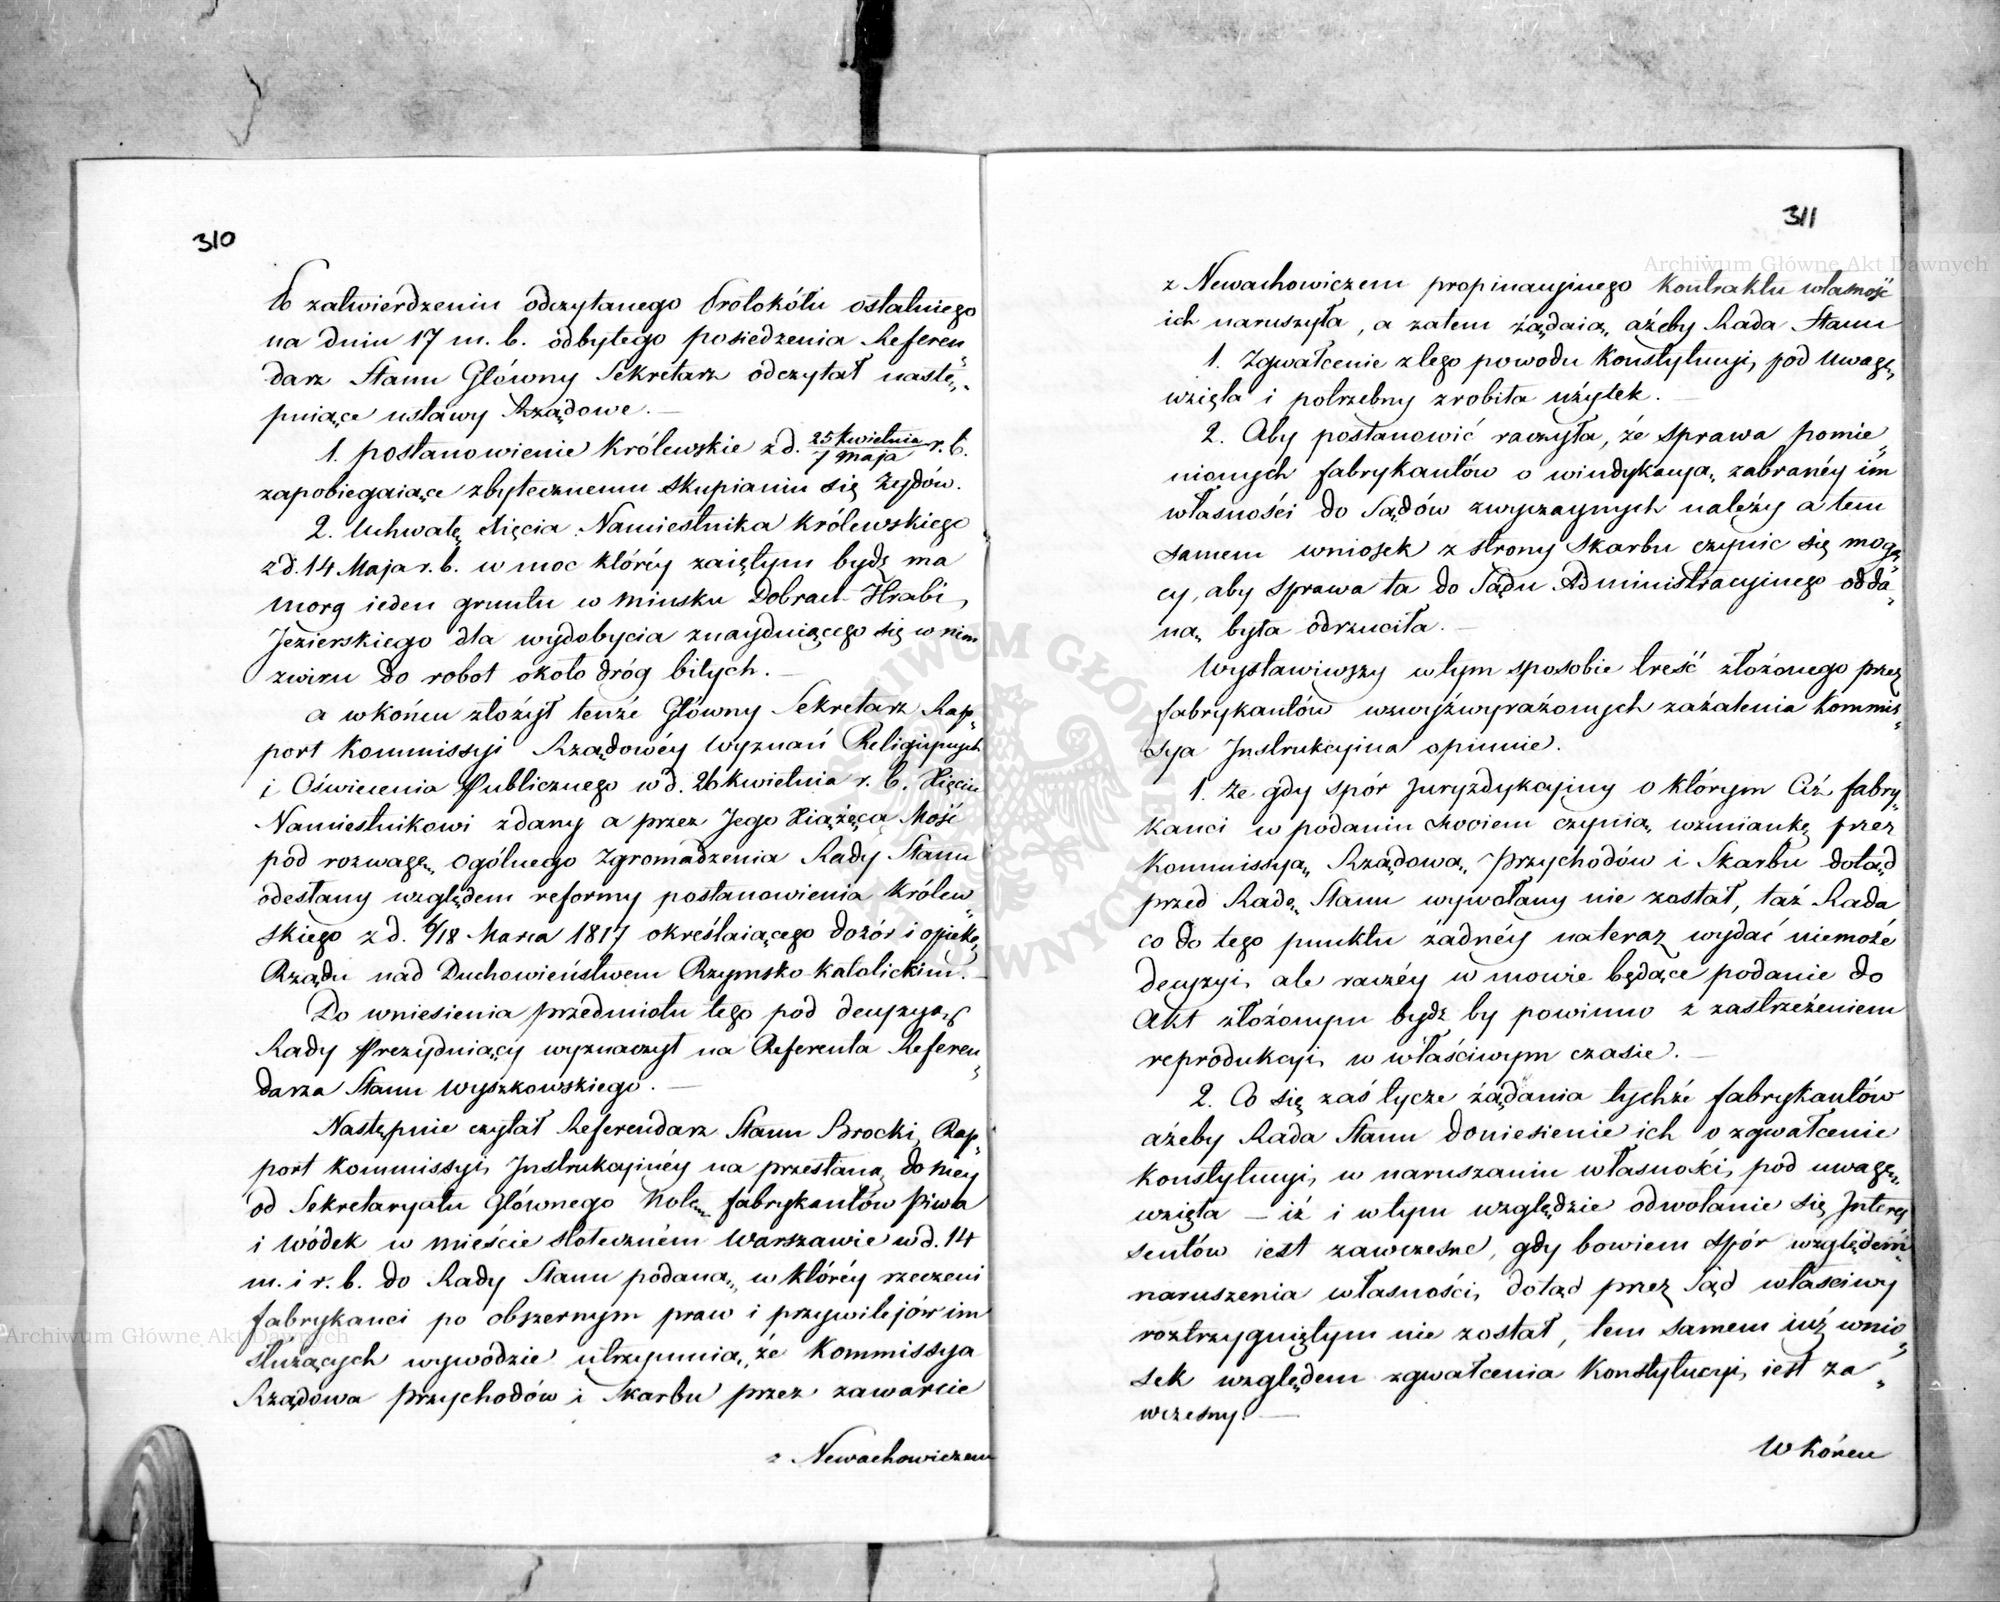 310
Po zatwierdzeniu odczytanego Protokółu ostatniego
na dniu 17 m. b. odbytego posiedzenia Referen„
darz Stanu Główny Sekretarz odczytał nastę„
puiące ustawy Rządowe. —
1. postanowienie Królewskie z d. 25 Kwietnia/7 Maja r. b.
zapobiegaiące zbytecznemu skupianiu się Żydów.
2. Uchwałę Xięcia Namiestnika Królewskiego
z d. 14 Maja r. b. w moc któréy zaiętym bydź ma
morg ieden gruntu w Minsku Dobrach Hrabi
Jezierskiego dla wydobycia znayduiącego się w nim
zwiru do robot około dróg bitych. —
a w końcu złożył tenże Główny Sekretarz Rap„
port Kommissyi Rządowéy Wyznań Religiynych
i Oświecenia Publicznego w d. 26 Kwietnia r. b. Xięciu
Namiestnikowi zdany a przez Jego Xiążęcą Mość
pod rozwagę Ogólnego Zgromadzenia Rady Stanu
odesłany względem reformy postanowienia Królew„
skiego z d. 6/18 Marca 1817 określaiącego dozór i opiekę
Rządu nad Duchowieństwem Rzymsko-Katolickim. —
Do wniesienia przedmiotu tego pod decyzyą
Rady Prezyduiący wyznaczył na Referenta Referen„
darza Stanu Wyszkowskiego. —
Następnie czytał Referendarz Stanu Brocki Rap„
port Kommissyi Instrukcyinéy na przesłaną do niey
od Sekretaryatu Głównego Notę fabrykantów Piwa
i Wódek w mieście stołeczném Warszawie w d. 14
m. i r. b. do Rady Stanu podaną, w któréy rzeczeni
fabrykanci po obszernym praw i przywilejów im
służących wywodzie utrzymuią, że Kommissya
Rządowa Przychodów i Skarbu przez zawarcie
z Newachowiczem
311
z Newachowiczem propinacyinego Kontraktu własność
ich naruszyła, a zatem żądaią, ażeby Rada Stanu
1. Zgwałcenie z tego powodu Konstytucyi, pod uwagę
wzięła i potrzebny zrobiła użytek. —
2. Aby postanowić raczyła, że sprawa pomie„
nionych fabrykantów o windykacyą zabranéy im
własności do Sądów zwyczaynych należy a tem
samem wniosek z strony Skarbu czynic się mogą„
cy, aby sprawa ta do Sądu Administracyinego odda„
ną była odrzuciła. —
Wystawiwszy w tym sposobie treść złożonego przez
fabrykantów wzwyżwyrażonych zażalenia Kommis„
sya Instrukcyina opiniuie.
1. Że gdy spór Juryzdykcyiny o którym Ciż fabry„
kanci w podaniu swoiem czynią wzmiankę przez
Kommissyą Rządową Przychodów i Skarbu dotąd
przed Radę Stanu wywołany nie został, taż Rada
co do tego punktu żadnéy nateraz wydać niemoże
decyzyi ale raczéy w mowie będące podanie do
Akt złożonym bydź by powinno z zastrzeżeniem
reprodukcji w właściwym czasie. —
2. Co się zaś tycze żądania tychże fabrykantów
ażeby Rada Stanu doniesienie ich o zgwałcenie
Konstytucyi, w naruszaniu własności, pod uwagę
wzięła — iż i w tym względzie odwołanie się Interes
sentów iest zawczesne, gdy bowiem spór względem
naruszenia własności, dotąd przez Sąd właściwy
roztrzygniętym nie został, tem samem iuż wnio„
sek względem zgwałcenia Konstytucyi, iest za„
wczesny. —
W Końcu
Archiwum Główne Akt Dawnych
Archiwum Główne Akt Dawnych